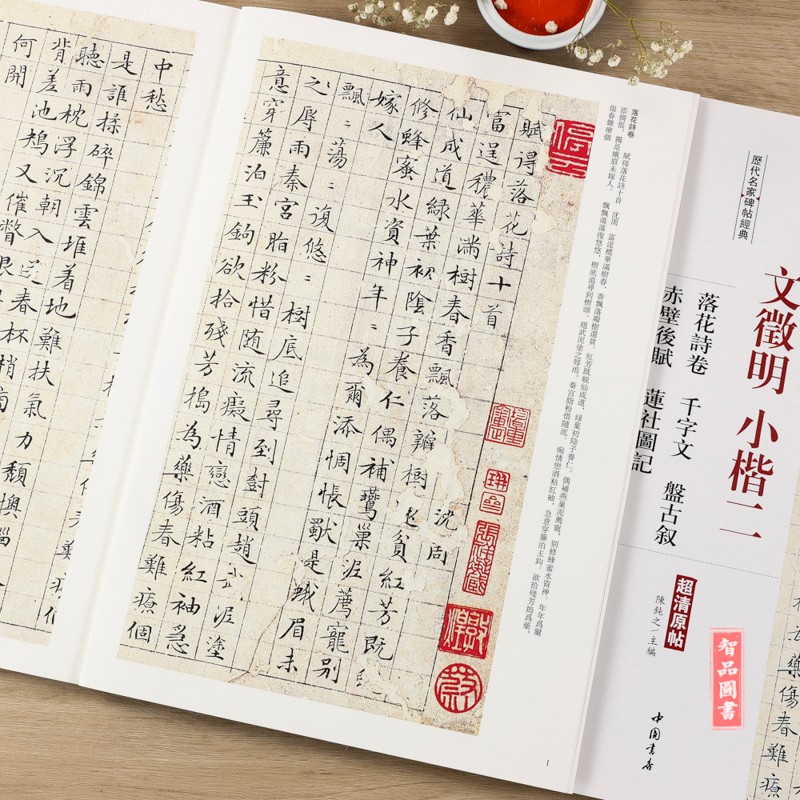 賦得落花詩十首 沈周
富逞穠華滿樹春香飄落瓣樹還貧紅芳既
仙成道綠葉初陰子養仁偶補鶯巢泥薦寵別
修蜂蜜水資神年〻為爾添惆悵獸是蛾眉未
嫁人
飄〻蕩〻復悠〻樹底追尋到樹頭趙武泥塗
之辱雨秦宮脂粉惜随流癡情戀酒粘紅袖急
意穿簾泊玉鉤欲拾殘芳搗為藥傷春難療個
中愁
是誰揉碎錦雲堆着地難扶氣力頹懊惱
聽雨枕浮沉朝入送春杯梢
背差池鴆又催瞥眼
何開
落花詩卷
賦得落花詩十首 沈周 富逞穠華滿樹春,香飄落瓣樹還貧。紅芳既蛻仙成道,綠葉初陰子養仁。偶補燕巢泥薦寵,別修蜂蜜水資神。年年為爾
添惆悵,獨是蛾眉未嫁人。 飄飄蕩蕩復悠悠,樹底追尋到樹頭。趙武泥塗之辱雨,秦宮脂粉惜隨流。癡情戀酒粘紅袖,急意穿簾泊玉鉤。欲拾殘芳搗爲藥,
傷春難療個
1
歷代名家碑帖經典
文徵明 小楷二
落花詩卷 千字文 盤古叙
赤壁後賦 蓮社圖記
超清原帖
陳鈍之 主編
智品圖書
中国書店